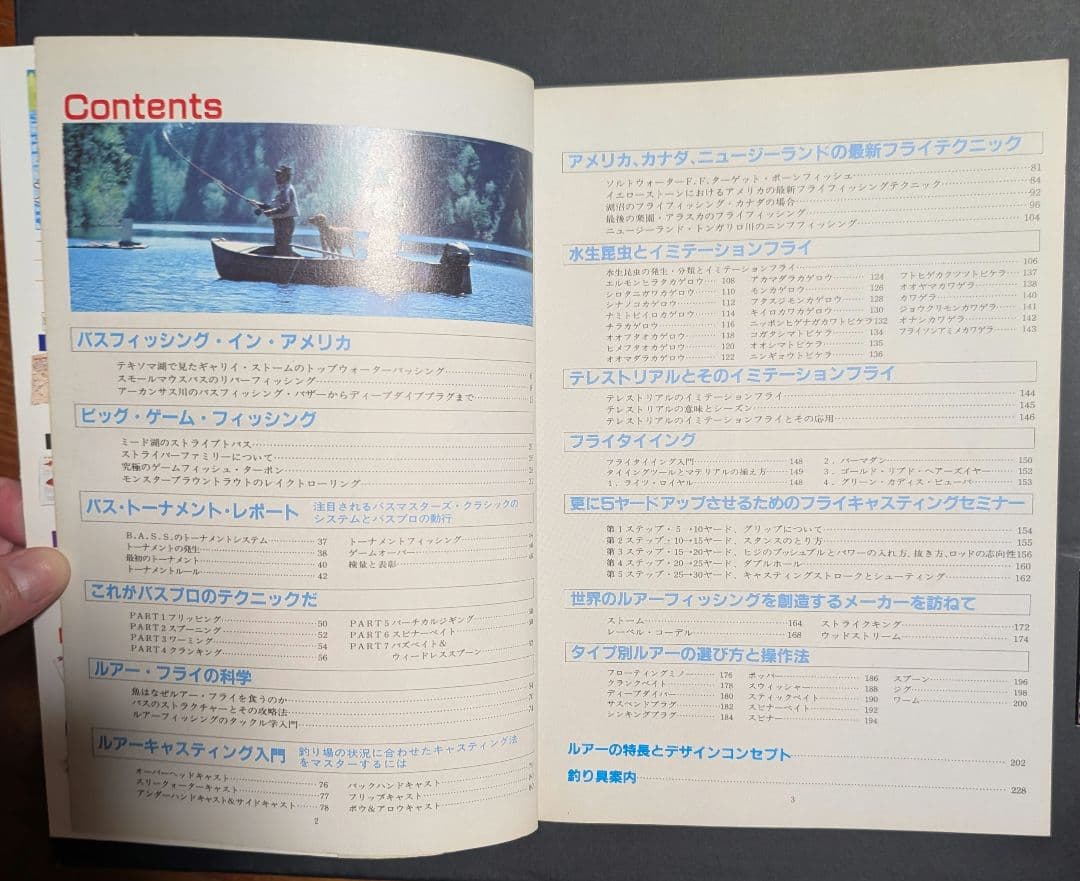 Contents
バスフィッシング・イン・アメリカ
テキソマ湖で見たギャリイ・ストームのトップウォーターバッシング
スモールマウスバスのリバーフィッシング
アーカンサス川のバスフィッシング・バザーからディープダイブプラグまで
ビッグ・ゲーム・フィッシング
ミード湖のストライプトバス
ストライパーファミリーについて
究極のゲームフィッシュ・ターポン
モンスターブラウントラウトのレイクトローリング
バス・トーナメント・レポート 注目されるバスマスターズ・クラシックの
システムとバスプロの動行
B.A.S.S.のトーナメントシステム 37
トーナメントの発生 38
最初のトーナメント 40
トーナメントルール 42
トーナメントフィッシング
ゲームオーバー
検量と表彰
これがバスプロのテクニックだ
PART1フリッピング 50
PART2スプーニング 52
PART3ワーミング 54
PART4クランキング 56
PART5バーチカルジギング
PART6スピナーベイト
PART7バズベイト&
ウィードレススプーン
ルアー・フライの科学
魚はなぜルアー・フライを食うのか
バスのストラクチャーとその攻略法
ルアーフィッシングのタックル学入門
ルアーキャスティング入門 釣り場の状況に合わせたキャスティング法
をマスターするには
オーバーヘッドキャスト 76
スリークォーターキャスト 77
アンダーハンドキャスト&サイドキャスト 78
バックハンドキャスト
フリップキャスト
ボウ&アロウキャスト
2
アメリカ、カナダ、ニュージーランドの最新フライテクニック
ソルトウォーターF.F.ターゲット・ボーンフィッシュ 81
イエローストーンにおけるアメリカの最新フライフィッシングテクニック 84
湖沼のフライフィッシング・カナダの場合 92
最後の楽園・アラスカのフライフィッシング 96
ニュージーランド・トンガリロ川のニンフフィッシング 104
水生昆虫とイミテーションフライ
水生昆虫の発生・分類とイミテーションフライ 106
エルモンヒラタカゲロウ 108
シロタニガワカゲロウ 110
シナノコカゲロウ 112
ナミトビイロカゲロウ 114
チラカゲロウ 116
オオフタオカゲロウ 118
ヒメフタオカゲロウ 120
オオマダラカゲロウ 122
アカマダラカゲロウ 124
モンカゲロウ 126
フタスジモンカゲロウ 128
キイロカワカゲロウ 130
ニッポンヒゲナガカワトビケラ132
コガタシマトビケラ 134
オオシマトビケラ 135
ニンギョウトビケラ 136
フトヒゲカクツツトビケラ 137
オオヤマカワゲラ 138
カワゲラ 140
ジョウクリモンカワゲラ 141
オナシカワゲラ 142
フライソンアミメカワゲラ 143
テレストリアルとそのイミテーションフライ
テレストリアルのイミテーションフライ 144
テレストリアルの意味とシーズン 145
テレストリアルのイミテーションフライとその応用 146
フライタイイング
フライタイイング入門 148
タイイングツールとマテリアルの揃え方 149
1.ライツ・ロイヤル 148
2.バーマダン 150
3.ゴールド・リブド・ヘアーズイヤー 152
4.グリーン・カディス・ピューパ 153
更に5ヤードアップさせるためのフライキャスティングセミナー
第1ステップ・5→10ヤード、グリップについて 154
第2ステップ・10→15ヤード、スタンスのとり方 155
第3ステップ・15→20ヤード、ヒジのプッシュプルとパワーの入れ方、抜き方、ロッドの志向性156
第4ステップ・20→25ヤード、ダブルホール 160
第5ステップ・25→30ヤード、キャスティングストロークとシューティング 162
世界のルアーフィッシングを創造するメーカーを訪ねて
ストーム 164
レーベル・コーデル 168
ストライクキング 172
ウッドストリーム 174
タイプ別ルアーの選び方と操作法
フローティングミノー 176
クランクベイト 178
ディープダイバー 180
サスペンドプラグ 182
シンキングプラグ 184
ポッパー 186
スウィッシャー 188
スティックベイト 190
スピナーベイト 192
スピナー 194
スプーン 196
ジグ 198
ワーム 200
ルアーの特長とデザインコンセプト 202
釣り具案内 228
3